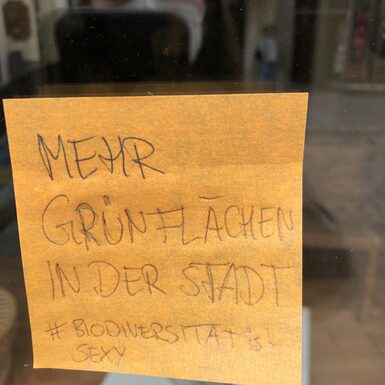 MEHR
GRÜNFLÄCHEN
IN DER STADT
# BIODIVERSITÄT is
SEXY